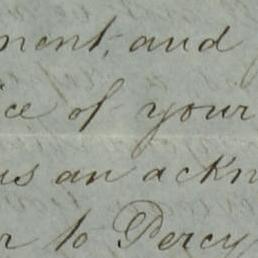 ment, and
ice of your
us an ackn
r to Percy